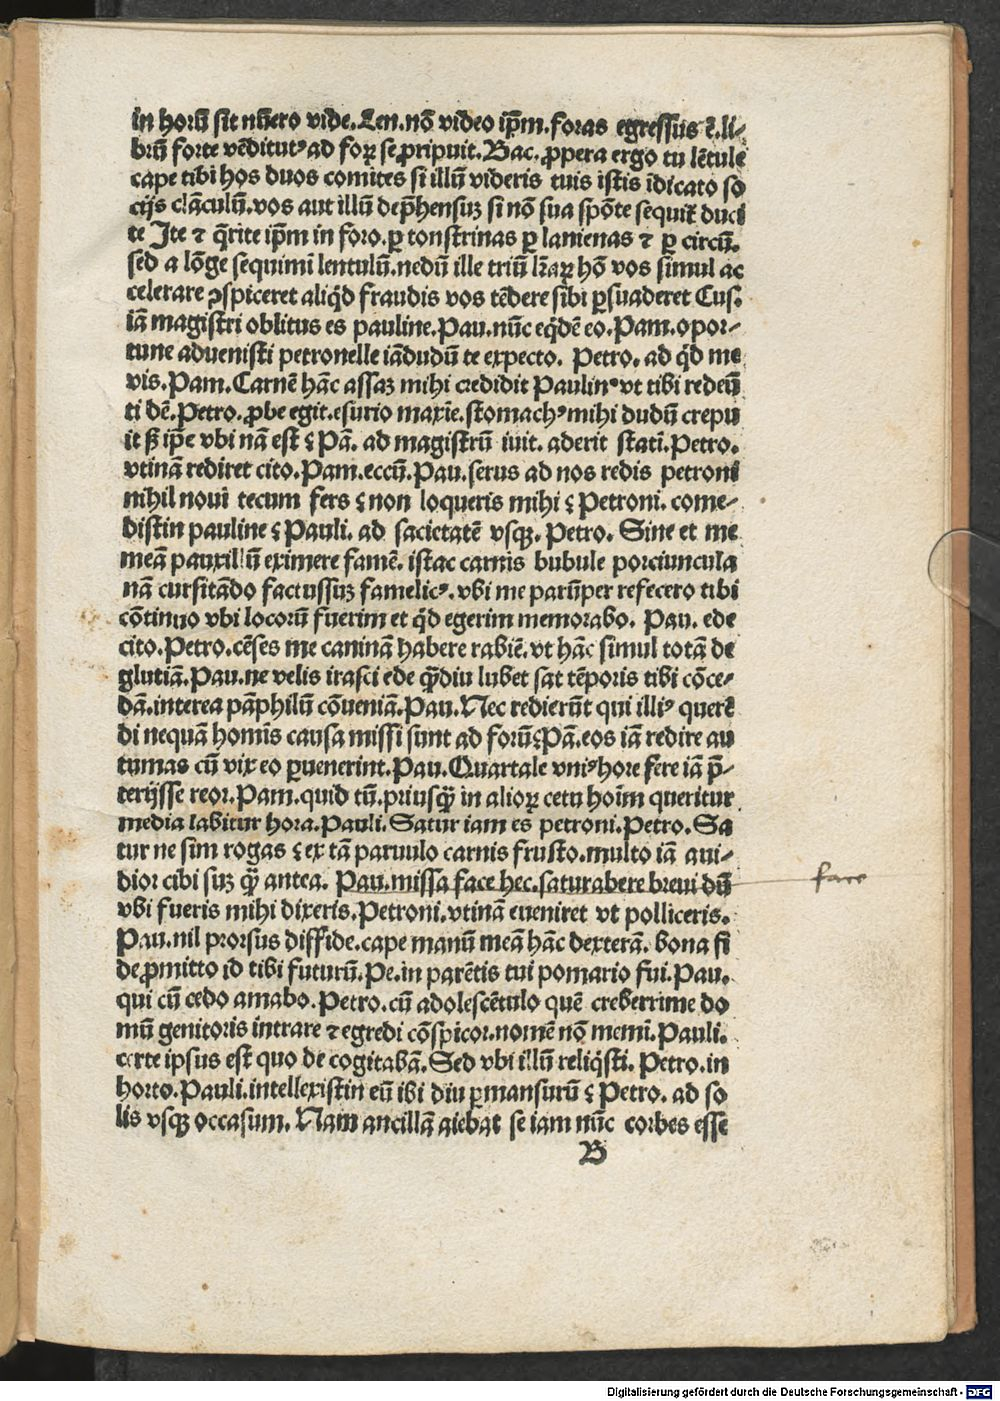 in horū sit nūero vide. Len. nō video ip̄m. foras egressus ē. li-
brū forte vēditutꝰ ad forꝝ se ꝓripuit. Bac. ꝓpera ergo tu lētule
cape tibi hos duos comites si illū videris tuis istis īdicato so
cijs clāculū. vos aut illū dep̄hensuꝫ si nō sua spōte sequit̄ duci
te Ite ⁊ q̄rite ip̄m in foro. ꝑ tonstrinas ꝑ lanienas ⁊ ꝑ circū.
sed a lōge sequimi lentulū. nedū ille triū lr̄aꝝ hō vos simul ac
celerare ꝯspiceret aliqd̄ fraudis vos tēdere sibi ꝑsuaderet Cus.
iā magistri oblitus es pauline. Pau. nūc eqd̄ē eo. Pam. opor-
tune advenisti petronelle iādudū te expecto. Petro. ad qd̄ me
vis. Pam. Carnē hāc assaꝫ mihi credidit Paulinꝰ vt tibi redeū
ti dē. Petro. ꝓbe egit. esurio maxīe. stomachꝰ mihi dudū crepu
it sꝫ ip̄e vbi nā est ? Pā. ad magistrū iuit. aderit statī. Petro.
vtinā rediret cito. Pam. eccū. Pau. serus ad nos redis petroni
nihil novi tecum fers ? non loqueris mihi ? Petroni. come-
distin pauline ? Pauli. ad sacietatē vsqꝫ. Petro. Sine et me
meā pauxillū eximere famē. istac carnis bubule porciuncula
nā cursitādo factussuꝫ famelicꝰ. vbi me parūper refecero tibi
cōtinuo vbi locorū fuerim et qd̄ egerim memorabo. Pau. ede
cito. Petro. cēses me caninā habere rabiē. vt hāc simul totā de
glutiā. Pau. ne velis irasci ede qm̄diu lubet sat tēporis tibi cōce-
dā. interea pāphilū cōveniā. Pau. Nec redierūt qui illiꝰ querē
di nequā homīs causa missi sunt ad forū? Pā. eos iā redire au
tumas cū vix eo ꝑuenerint. Pau. Quartale vniꝰ hore fere iā p̄-
terijsse reor. Pam. quid tū. priusqꝫ̄ in alioꝝ cetu hoīm queritur
media labitur hora. Pauli. Satur iam es petroni. Petro. Sa
tur ne sim rogas ? ex tā paruulo carnis frusto. multo iā aui-
dior cibi suꝫ qꝫ̄ antea. Pau. missa face hec. saturabere brevi dū
vbi fueris mihi dixeris. Petroni. vtinā eueniret vt polliceris.
Pau. nil prorsus diffide. cape manū meā hāc dexterā. bona fi
de ꝓmitto id tibi futurū. Pe. in parētis tui pomario fui. Pau.
qui cū cedo amabo. Petro. cū adolescētulo quē creberrime do
mū genitoris intrare ⁊ egredi cōspicor. nomē nō memī. Pauli.
certe ipsus est quo de cogitabā. Sed vbi illū reliqsti. Petro. in
horto. Pauli. intellexistin eū ibi diu ꝑmansurū ? Petro. ad so
lis vsqꝫ occasum. Nam ancillā aiebat se iam nūc corbes esse
B
face
Digitalisierung gefördert durch die Deutsche Forschungsgemeinschaft - DFG